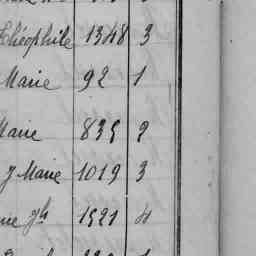 Théophile 1348 3
Marie 92 1
Marie 835 2
J Marie 1019 3
Jh 1521 4